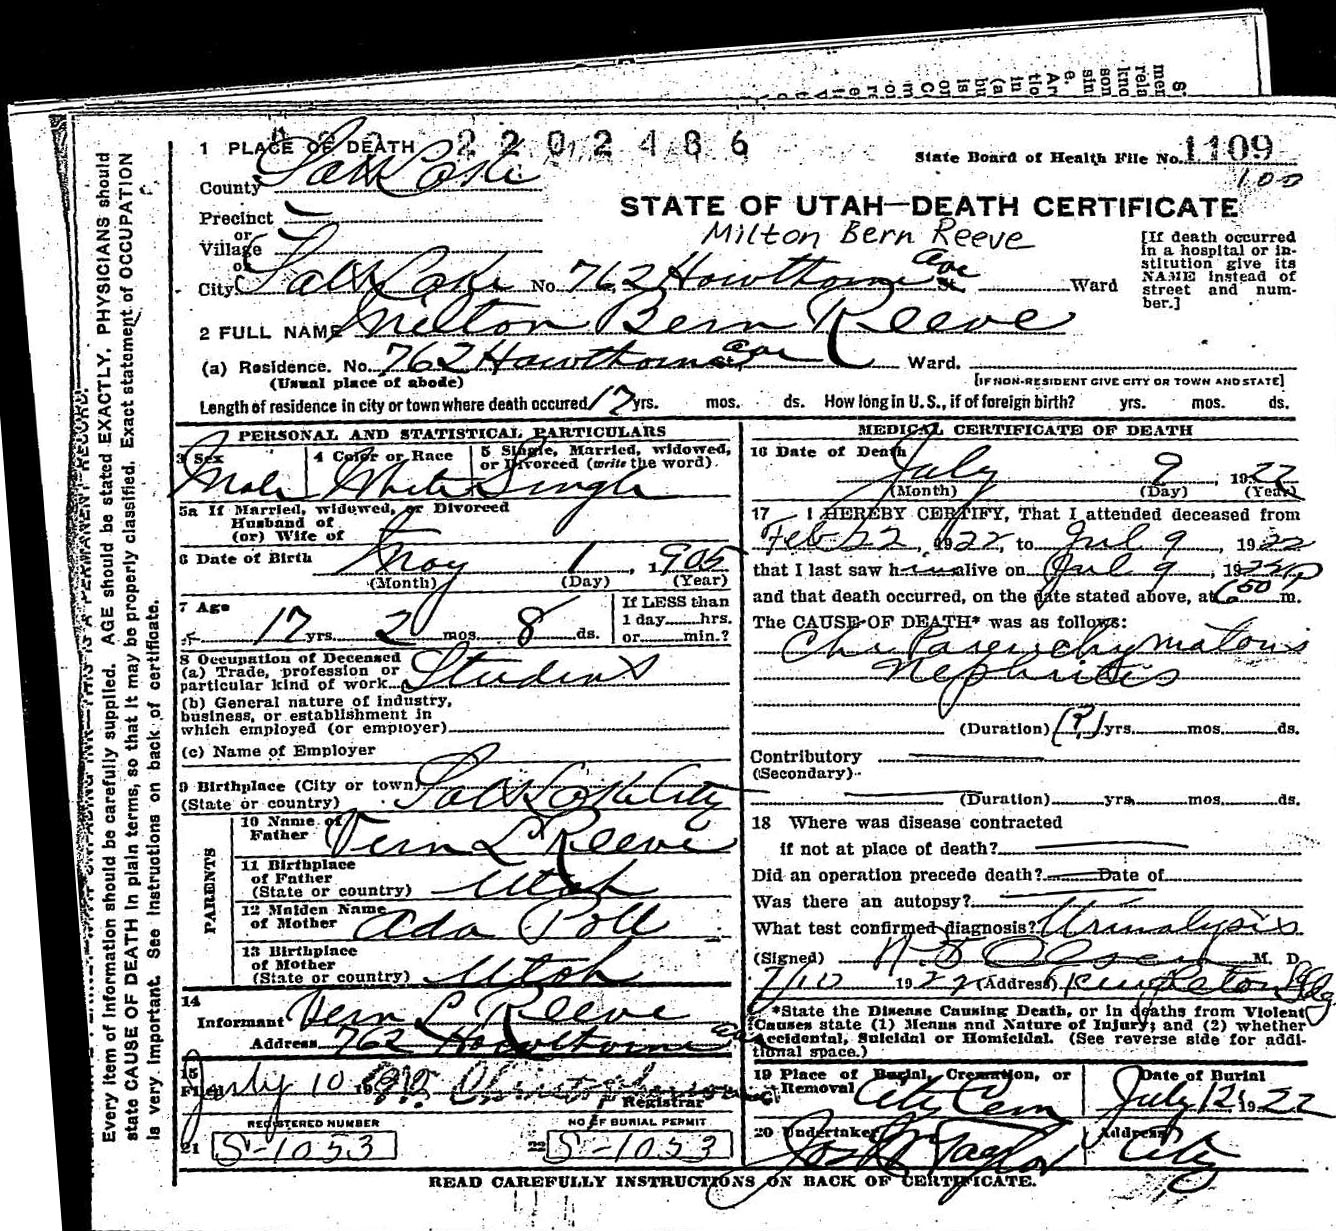 2202486
1 PLACE OF DEATH
State Board of Health File No. 1109
100
County Salt Lake
STATE OF UTAH—DEATH CERTIFICATE
Precinct
or
Village
or
Milton Bern Reeve
[If death occurred
in a hospital or in-
stitution give its
NAME instead of
street and num-
ber.]
City Salt Lake No. 762 Hawthorne Ave St. Ward
2 FULL NAME Milton Bern Reeve
(a) Residence. No. 762 Hawthorne Ave St. Ward.
(Usual place of abode)
[IF NON-RESIDENT GIVE CITY OR TOWN AND STATE]
Length of residence in city or town where death occured 17 yrs. mos. ds. How long in U. S., if of foreign birth? yrs. mos. ds.
PERSONAL AND STATISTICAL PARTICULARS
3 Sex
4 Color or Race
5 Single, Married, widowed,
or Divorced (write the word).
Male White Single
5a If Married, widowed, or Divorced
Husband of
(or) Wife of
6 Date of Birth May 1, 1905
(Month) (Day) (Year)
7 Age
17 yrs. 2 mos. 8 ds.
If LESS than
1 day hrs.
or min.?
8 Occupation of Deceased
(a) Trade, profession or
particular kind of work Student
(b) General nature of industry,
business, or establishment in
which employed (or employer)
(c) Name of Employer
9 Birthplace (City or town)
(State or country) Salt Lake City
PARENTS
10 Name of
Father Vern L Reeve
11 Birthplace
of Father
(State or country) Utah
12 Maiden Name
of Mother Ada Poll
13 Birthplace
of Mother
(State or country) Utah
14
Informant Vern L Reeve
Address 762 Hawthorne Ave
15
Filed July 10 19
Registrar
REGISTERED NUMBER
21 S-1053
NO OF BURIAL PERMIT
22 S-1053
MEDICAL CERTIFICATE OF DEATH
16 Date of Death July 9, 1922
(Month) (Day) (Year)
17 I HEREBY CERTIFY, That I attended deceased from
Feb 22, 1922, to Jul 9, 1922
that I last saw him alive on Jul 9, 1922
and that death occurred, on the date stated above, at 6 50 P m.
The CAUSE OF DEATH* was as follows:
Chr Parenchymatous
Nephritis
(Duration) (?) yrs. mos. ds.
Contributory
(Secondary)
(Duration) yrs. mos. ds.
18 Where was disease contracted
if not at place of death?
Did an operation precede death? Date of
Was there an autopsy?
What test confirmed diagnosis? Urinalysis
(Signed) Olsen M. D.
7/10 1922 (Address)
*State the Disease Causing Death, or in deaths from Violent
Causes state (1) Means and Nature of Injury; and (2) whether
Accidental, Suicidal or Homicidal. (See reverse side for addi-
tional space.)
19 Place of Burial, Cremation, or
Removal City Cem
Date of Burial
July 12 1922
20 Undertaker Jos Wm Taylor
Address City
READ CAREFULLY INSTRUCTIONS ON BACK OF CERTIFICATE.
Every item of information should be carefully supplied. AGE should be stated EXACTLY. PHYSICIANS should
state CAUSE OF DEATH in plain terms, so that it may be properly classified. Exact statement of OCCUPATION
is very important. See instructions on back of certificate.